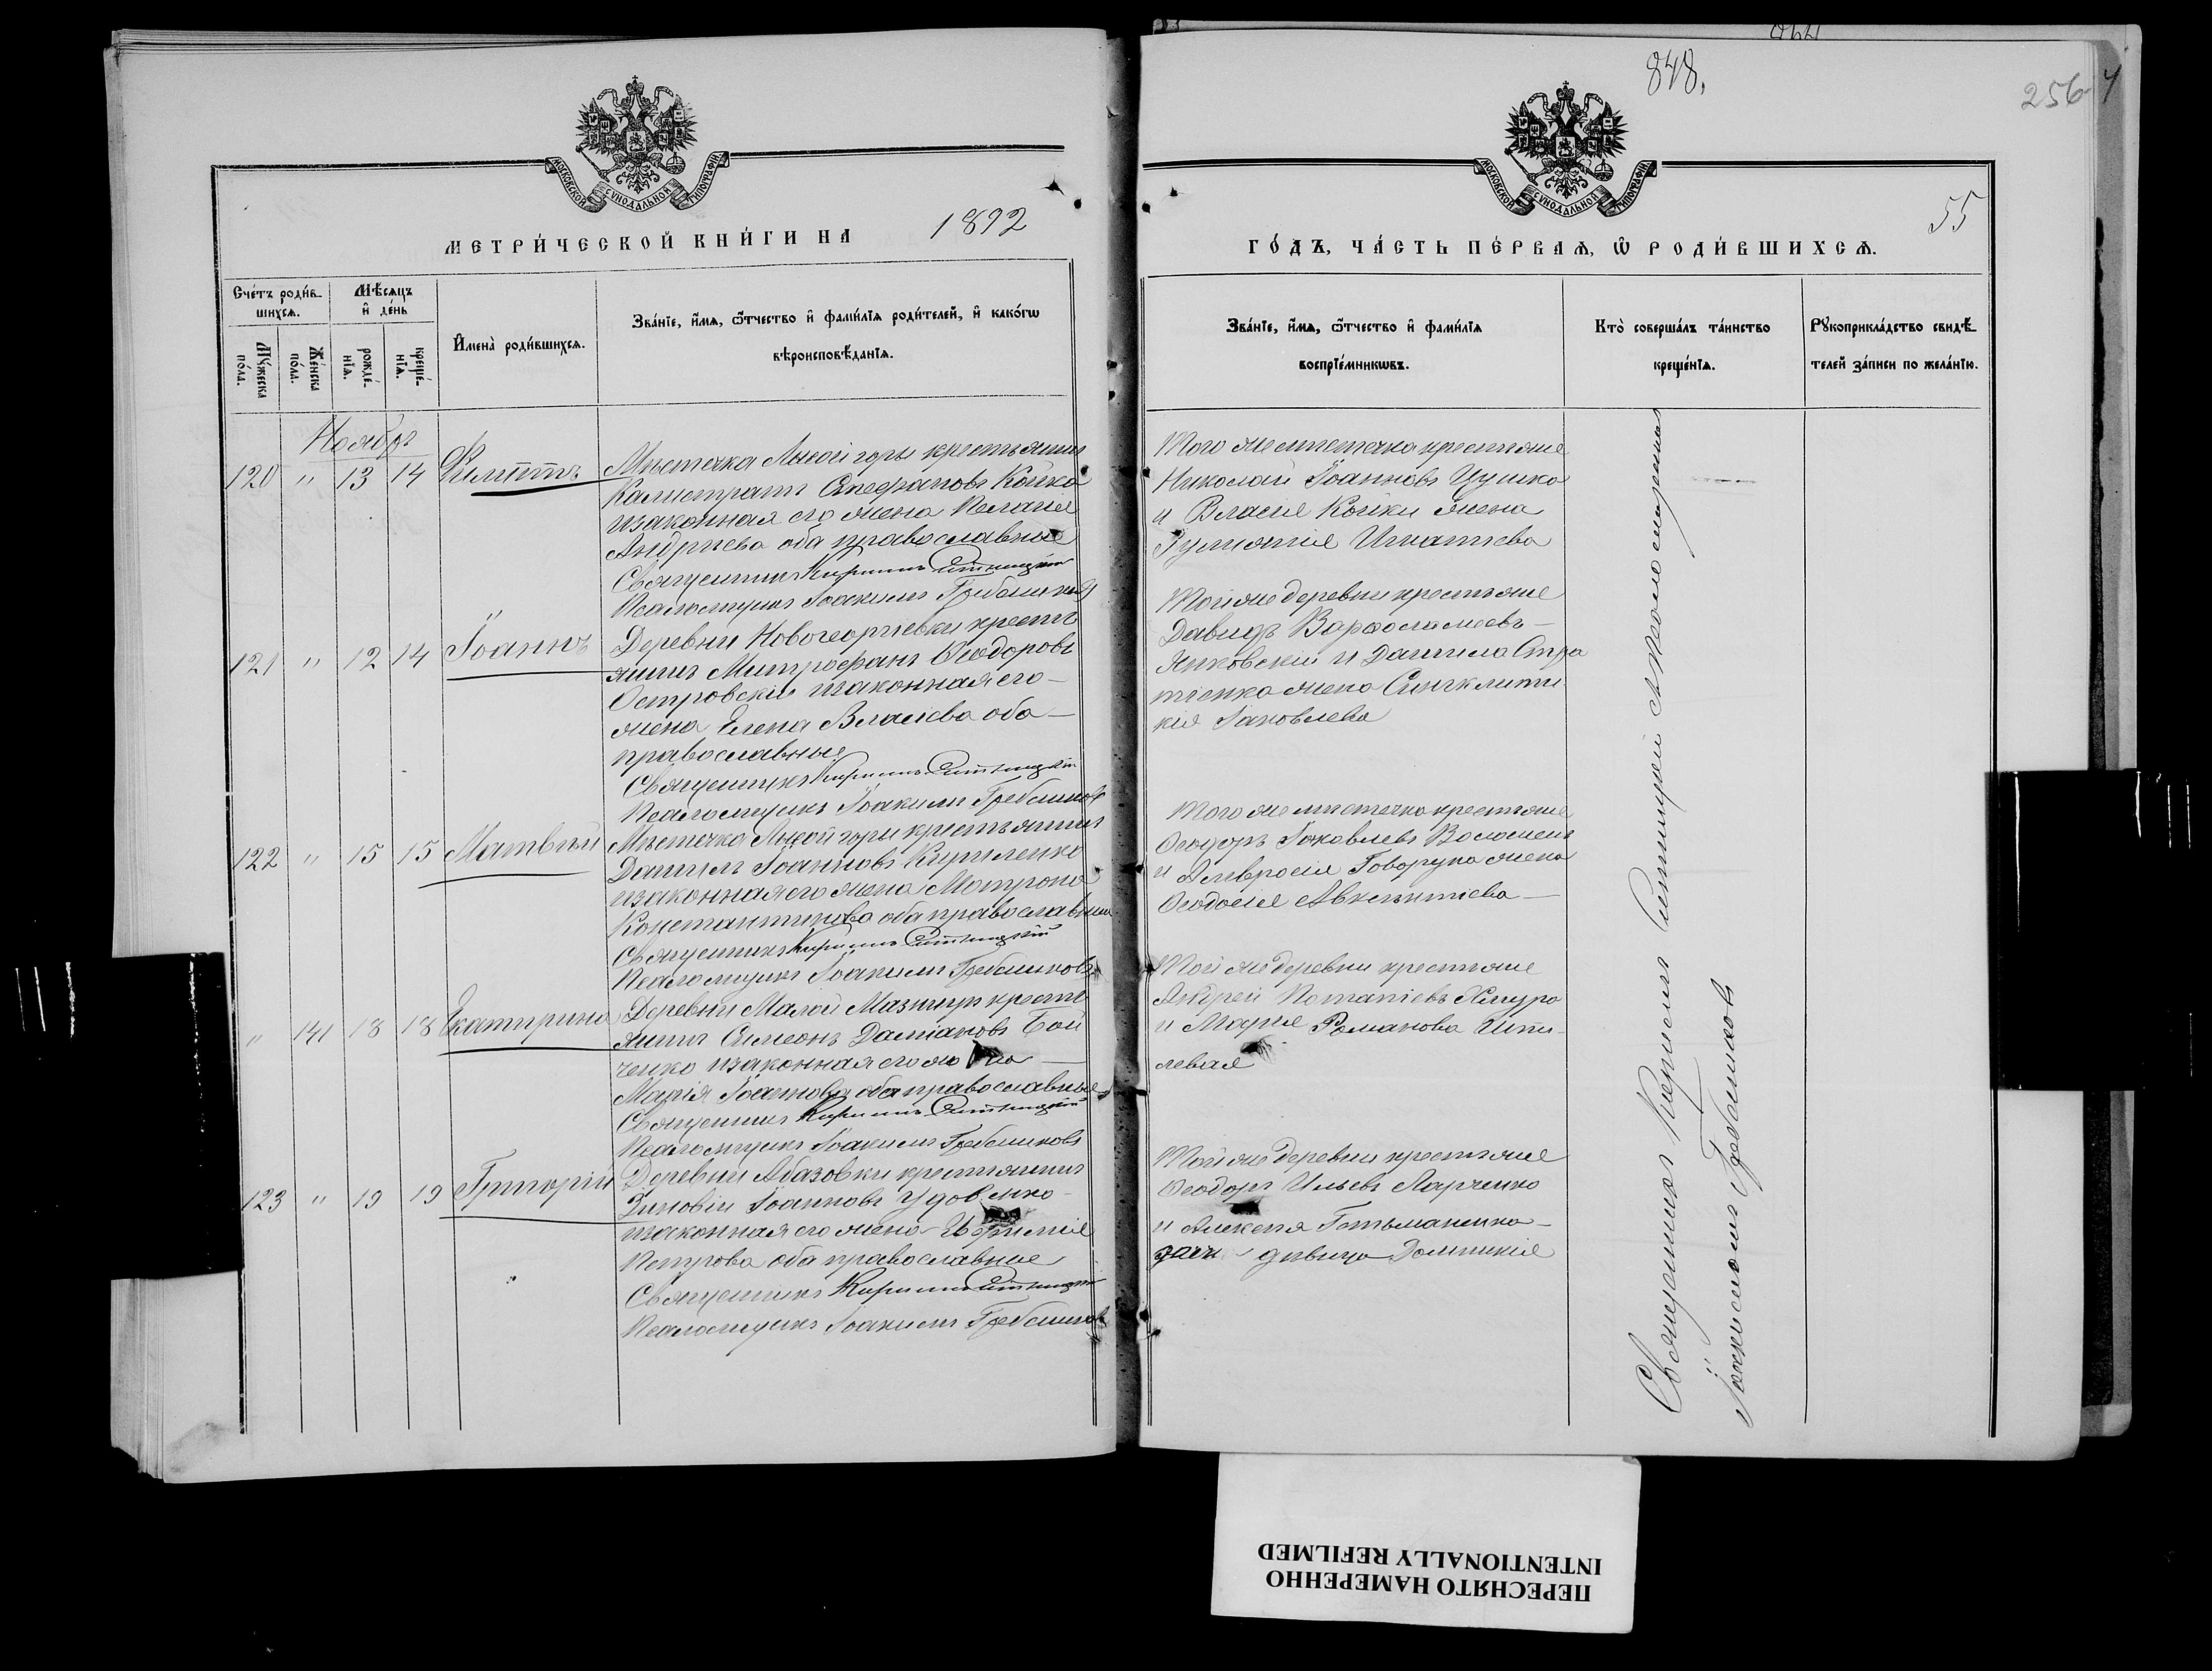 848.
256
55
МОСКОВСКОЙ СѴНОДАЛЬНОЙ ТИПОГРАФІИ
МЕТРИ́ЧЕСКОЙ КНИ́ГИ НА 1892
Сче́тъ роди́вшихсѧ.
Мѣ́сяцъ и҆ де́нь
И҆мена̀ роди́вшихсѧ.
Зва́нїе, и҆́мѧ, ѻ҆́тчество и҆ фами́лїѧ роди́телей, и҆ како́гѡ
вѣроисповѣ́данїѧ.
Мꙋ́жеска по́ла.
Же́нска по́ла.
рожде́нїѧ.
креще́нїѧ.
Ноябрь
120 " 13 14 Филиппъ
Мѣстечка Лысой горы крестьянинъ
Калистратъ Стефановъ Койка
и законная его жена Пелагія
Андреева оба православные
Священникъ Кириллъ Ситницкій
Псаломщикъ Іоакимъ Гребенниковъ
121 " 12 14 Іоаннъ
Деревни Новогеоргіевки кресть
янинъ Митрофанъ Ѳеодоровъ
Островскій и законная его
жена Елена Власіева оба
православные
Священникъ Кириллъ Ситницкій
Псаломщикъ Іоакимъ Гребенниковъ
122 " 15 15 Матвій
Мѣстечка Лысой горы крестьянинъ
Даніилъ Іоанновъ Кириленко
и законная его жена Матрона
Константинова оба православные
Священникъ Кириллъ Ситницкій
Псаломщикъ Іоакимъ Гребенниковъ
" 141 18 18 Екатирина
Деревни Малой Мазничи кресть
янинъ Симеонъ Даміановъ Бой
ченко и законная его жена
Марія Іоаннова оба православные
Священникъ Кириллъ Ситницкій
Псаломщикъ Іоакимъ Гребенниковъ
123 " 19 19 Григорій
Деревни Абазовки крестьянинъ
Зиновій Іоанновъ Удовенко
и законная его жена Евфимія
Петрова оба православные
Священникъ Кириллъ Ситницкій
Псаломщикъ Іоакимъ Гребенниковъ
МОСКОВСКОЙ СѴНОДАЛЬНОЙ ТИПОГРАФІИ
ГО́ДЪ, ЧА́СТЬ ПЕ́РВАѦ, Ѽ РОДИ́ВШИХСѦ.
Зва́нїе, и҆́мѧ, ѻ҆́тчество и҆ фами́лїѧ
воспрїе́мникѡвъ.
Кто̀ соверша́лъ та́инство
креще́нїѧ.
Рꙋкоприкла́дство свидѣ́
телей за́писи по жела́нїю.
Того же мѣстечка крестьяне
Николай Іоанновъ Цушко
и Власія Койки жена
Іуліянія Игнатіева
Той же деревни крестьяне
Давидъ Варѳоломеевъ
Янковскій и Даніила Стра
тіенка жена Синклити
кія Іаковлева
Того же мѣстечка крестьяне
Ѳеодоръ Іаковлевъ
и Амвросія Говоруна жена
Ѳеодосія Авксентіева
Той же деревни крестьяне
Андрей Потапіевъ Хмуро
и Марія Романова Шпи
левая
Той же деревни крестьяне
Ѳеодоръ Ильевъ Ларченко
и Алексѣя Гетьманенка
дочь дѣвица Домникія
Священникъ Кириллъ Ситницкій съ Псаломщикомъ
Іоакимомъ Гребенниковъ
ПЕРЕСНЯТО НАМЕРЕННО
INTENTIONALLY REFILMED